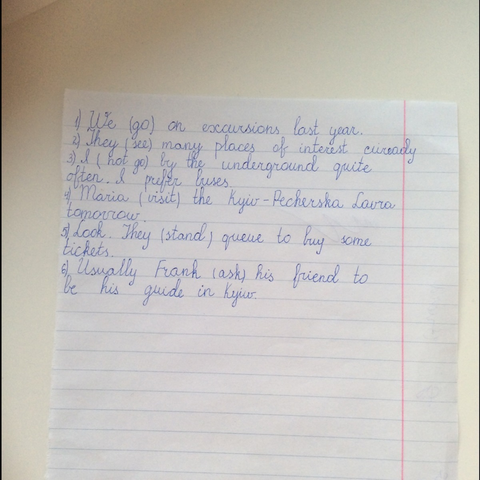 1) We (go) on excursions last year.
2) They (see) many places of interest curready
3) I (not go) by the underground quite
often. I prefer buses.
4) Maria (visit) the Kyiv-Pecherska Lavra
tomorrow.
5) Look. They (stand) queue to buy some
tickets.
6) Usually Frank (ask) his friend to
be his guide in Kyiv.